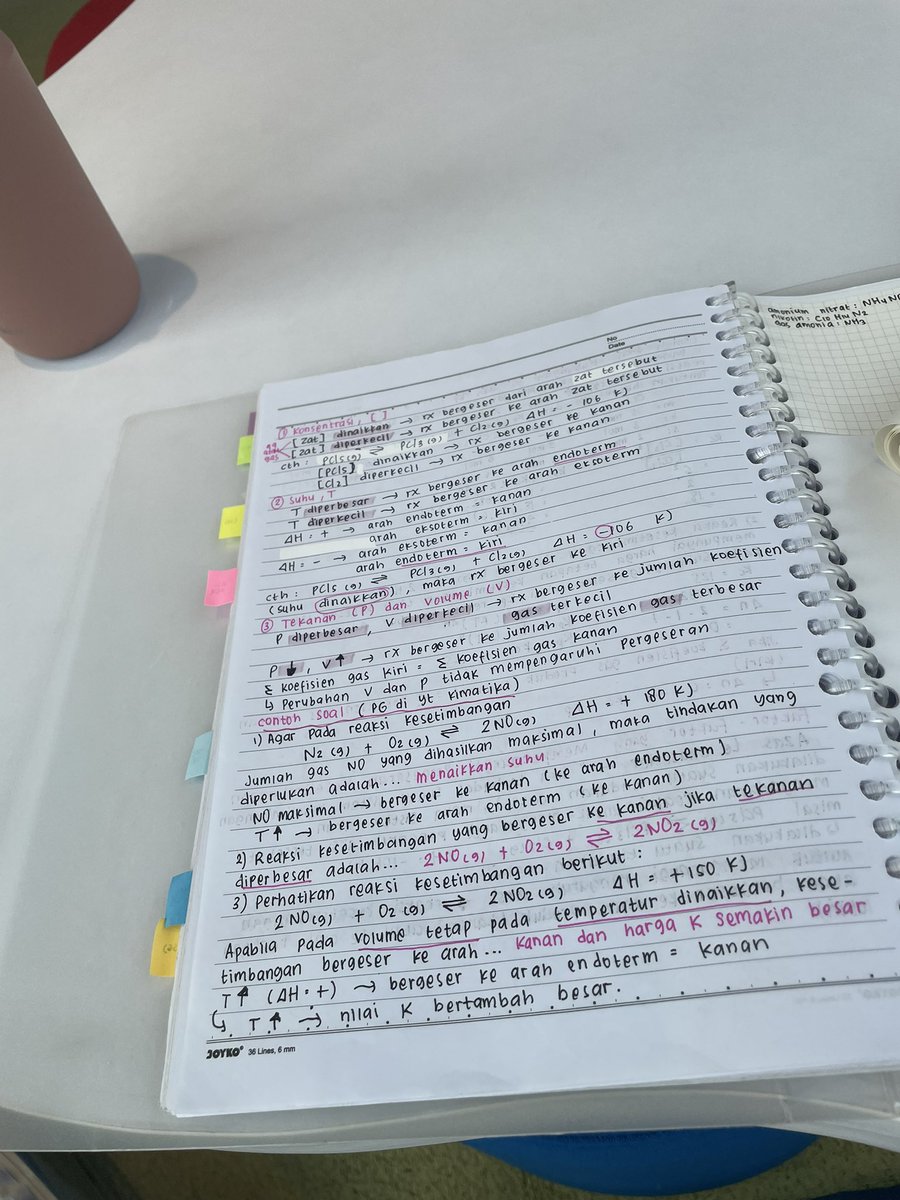 No
Date
① Konsentrasi, [ ]
[zat] dinaikkan → rx bergeser dari arah zat tersebut
[zat] diperkecil → rx bergeser ke arah zat tersebut
aq atau gas
cth: PCl5(g) ⇌ PCl3(g) + Cl2(g) ΔH = - 106 KJ
[PCl5] dinaikkan → rx bergeser ke kanan
[Cl2] diperkecil → rx bergeser ke kanan
② Suhu, T
T diperbesar → rx bergeser ke arah endoterm
T diperkecil → rx bergeser ke arah eksoterm
ΔH = + → arah endoterm = kanan
arah eksoterm = kiri
ΔH = - → arah eksoterm = kanan
arah endoterm = kiri
cth: PCl5 (g) ⇌ PCl3(g) + Cl2(g) ΔH = -106 KJ
(suhu dinaikkan), maka rx bergeser ke kiri
③ Tekanan (P) dan volume (V)
P diperbesar, V diperkecil → rx bergeser ke jumlah koefisien
gas terkecil
P ↓, V ↑ → rx bergeser ke jumlah koefisien gas terbesar
Σ koefisien gas kiri = Σ koefisien gas kanan
↳ Perubahan V dan P tidak mempengaruhi pergeseran
contoh soal (PG di yt kimatika)
1) Agar pada reaksi kesetimbangan
N2(g) + O2(g) ⇌ 2NO(g) ΔH = + 180 KJ
Jumlah gas NO yang dihasilkan maksimal, maka tindakan yang
diperlukan adalah... menaikkan suhu
NO maksimal → bergeser ke kanan (ke arah endoterm)
T ↑ → bergeser ke arah endoterm (ke kanan)
2) Reaksi kesetimbangan yang bergeser ke kanan jika tekanan
diperbesar adalah... 2NO(g) + O2(g) ⇌ 2NO2(g)
3) Perhatikan reaksi kesetimbangan berikut:
2NO(g) + O2(g) ⇌ 2NO2(g) ΔH = +150 KJ
Apabila pada volume tetap pada temperatur dinaikkan, kese-
timbangan bergeser ke arah... kanan dan harga K semakin besar
T ↑ (ΔH = +) → bergeser ke arah endoterm = kanan
↳ T ↑ → nilai K bertambah besar.
JOYKO® 36 Lines, 6 mm
amonium nitrat: NH4NO
nikotin: C10 H14 N2
gas amonia: NH3